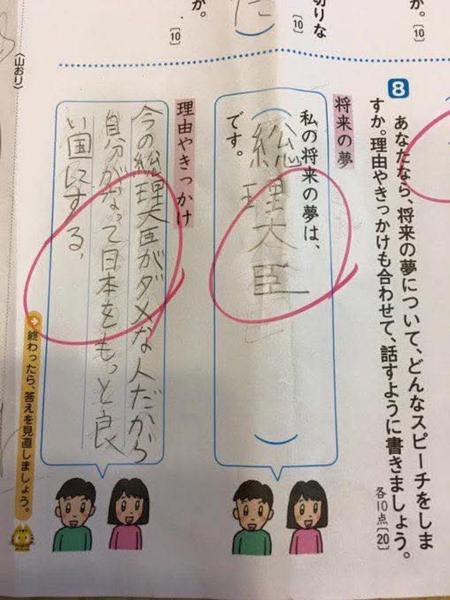 か。
[10]
切りな
[10]
か。
[10]
8
あなたなら、将来の夢について、どんなスピーチをしま
すか。理由やきっかけも合わせて、話すように書きましょう。
各10点[20]
将来の夢
私の将来の夢は、
(総理大臣)
です。
理由やきっかけ
今の総理大臣がダメな人だから
自分がなって日本をもっと良
い国にする。
終わったら、答えを見直しましょう。
〈山おり〉